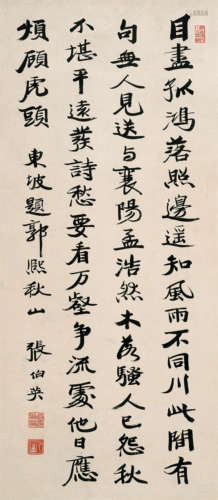 目盡孤鴻落照邊遥知風雨不同川此間有
句無人見送与襄陽孟浩然木落騷人已怨秋
不堪平遠發詩愁要看万壑争流處他日應
煩顧虎頭
東坡題郭熙秋山 張伯英